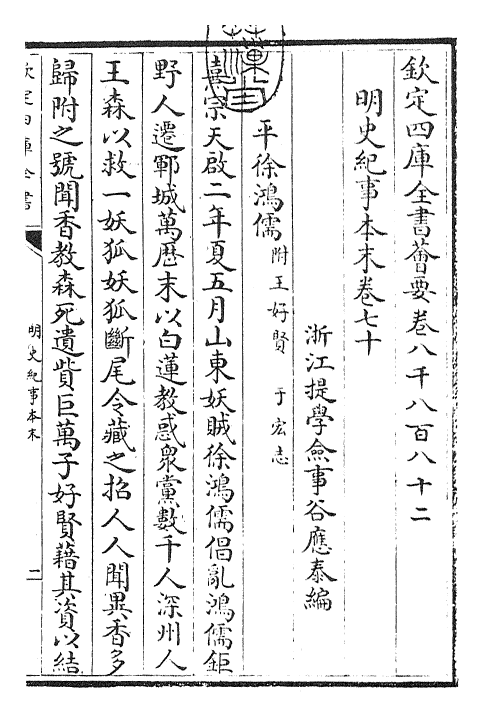 欽定四庫全書薈要卷八千八百八十二
明史紀事本末卷七十
浙江提學僉事谷應泰編
平徐鴻儒附王好賢 于宏志
熹宗天啟二年夏五月山東妖賊徐鴻儒倡亂鴻儒鉅
野人遷鄆城萬歷末以白蓮教惑衆黨數千人深州人
王森以救一妖狐妖狐斷尾令藏之招人人聞異香多
歸附之號聞香教森死遺貲巨萬子好賢藉其資以結
欽定四庫全書
明史紀事本末
二